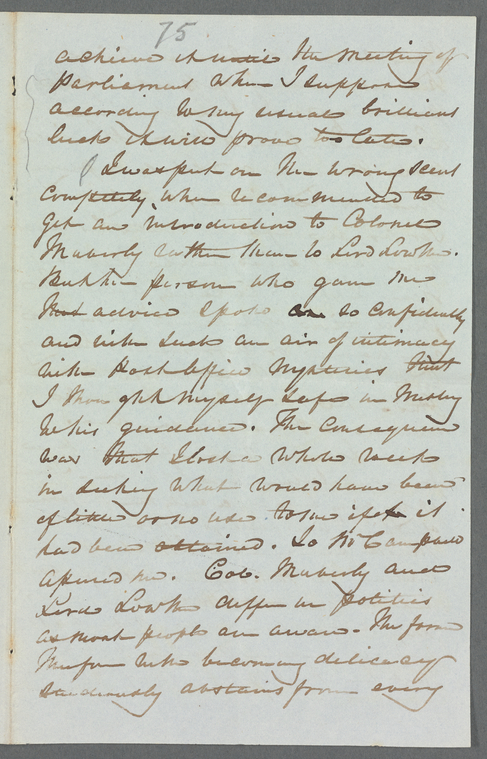 75
achieve it until the meeting of
Parliament when I suppose
according to my usual brilliant
luck it will prove too late.
I was put on the wrong scent
completely, when recommended to
get an introduction to Colonel
Maberly rather than to Lord Lowth.
But the person who gave me
that advice spoke so confidently
and with such an air of intimacy
with Post Office mysteries that
I thought myself safe in trusting
to his guidance. The consequence
was that I lost a whole week
in seeking what would have been
of little or no use to me if it
had been obtained. So Mr Campbell
assured me. Col. Maberly and
Lord Lowth differ in politics
as most people are aware. The former
therefore with becoming delicacy
studiously abstains from every